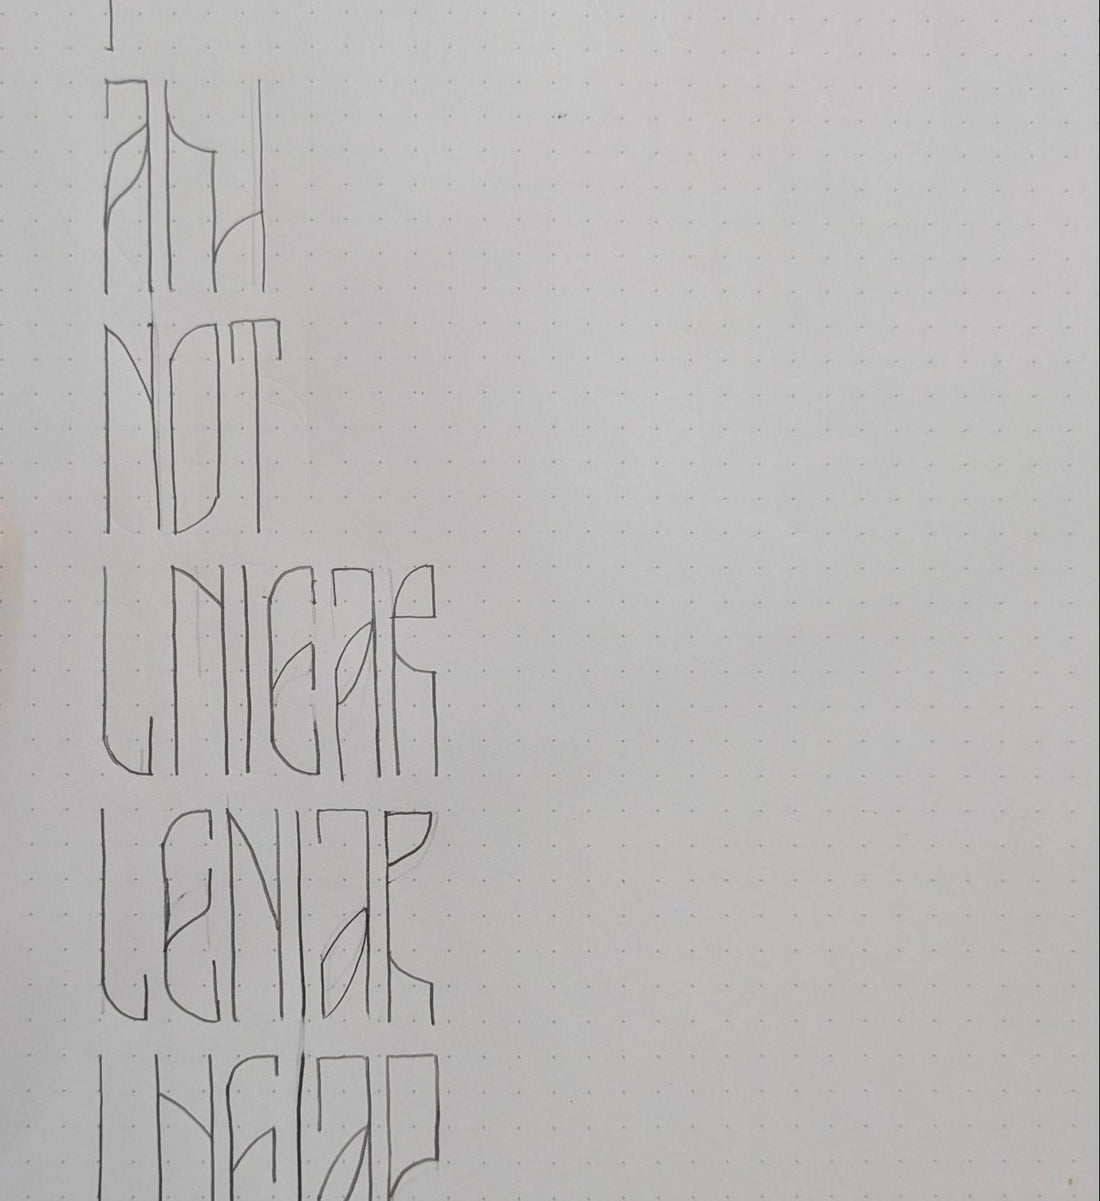 AND
NOT
LNIEAR
LENIAR
LNEIAR